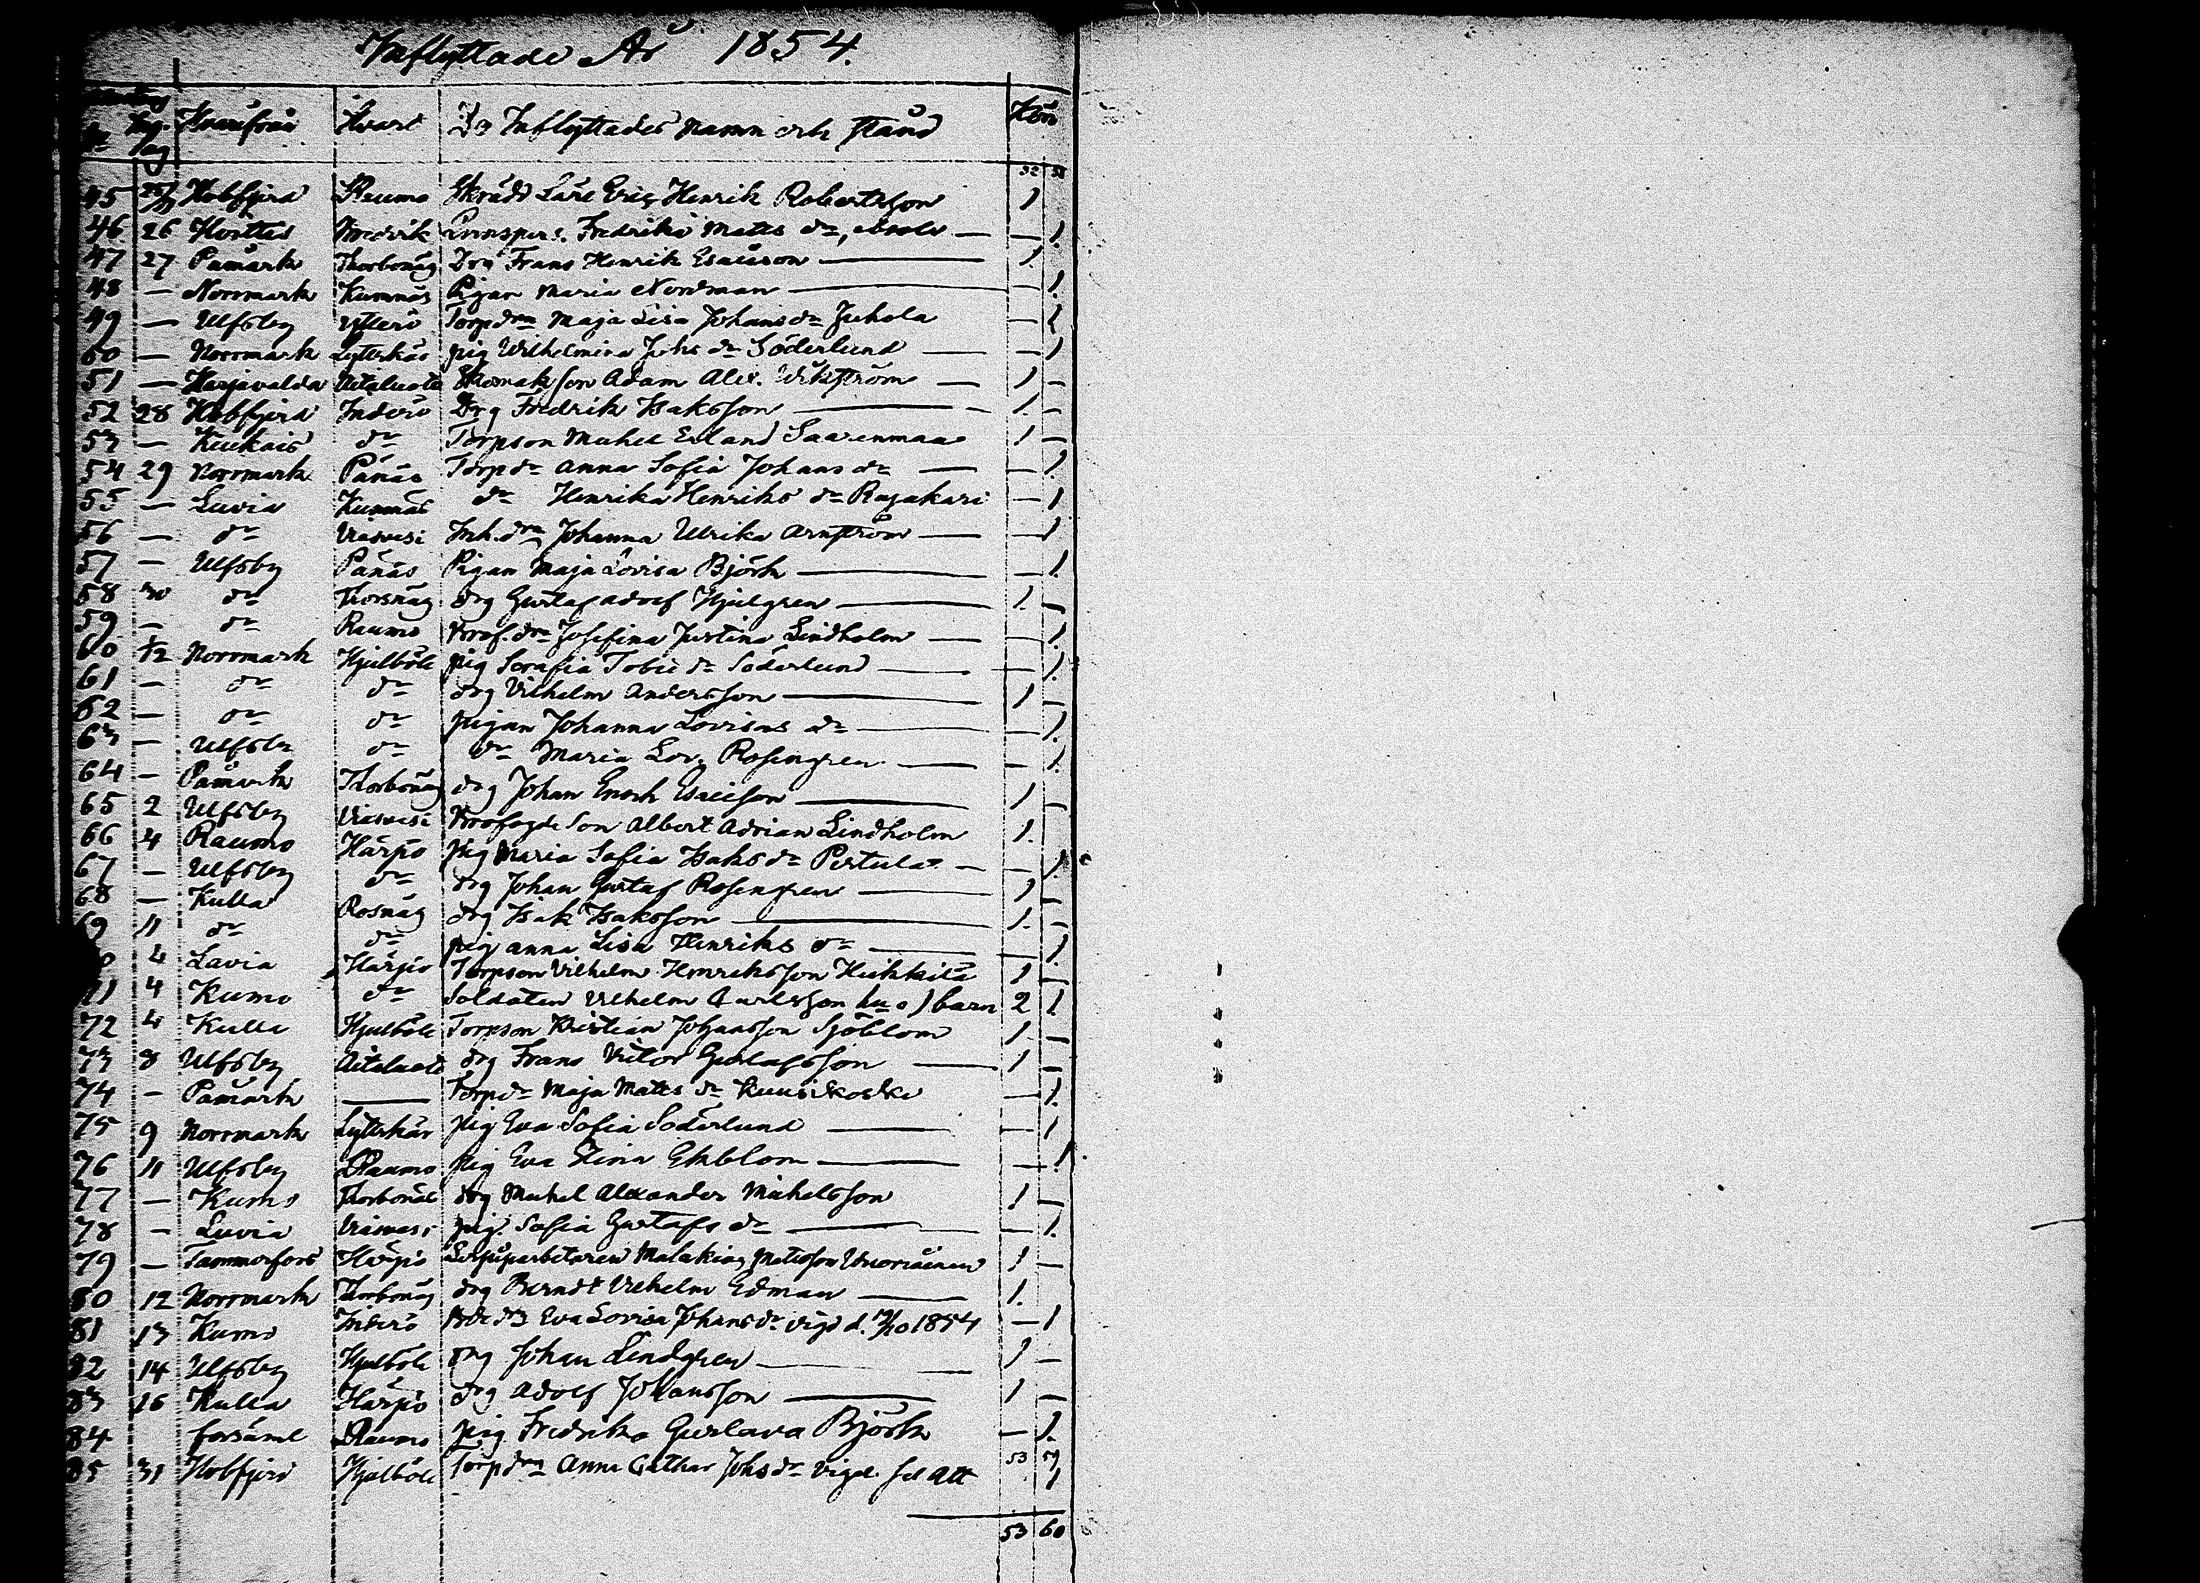 Inflyttade År 1854.
Hvarifrån Hvart De Inflyttades namn och stånd Kön
32 38
45 25/11 Hvbfjerd Raumo Skrädd Lärl Eric Henrik Robertsson 1
46 26 Hvittis Fredrika Matts dr, — — 1.
47 27 Påmark Thorbonäs Drg Frans Henrik Esaiasson — 1.
48 — Norrmark Kumnäs Pigan Maria Nordman — — 1.
49 — Ulfsby Ytterö Torpdrn Maja Lisa Johans dr Juhola — 1
50 — Norrmark Lytterkär pig Wilhelmina Johs dr Söderlund — — 1
51 — Harjavalda Aitaluoto Skomak son Adam Alex. Wikström — 1 —
52 28 Hvbfjerd Inderö Drg Fredrik Isaksson — 1. —
53 — Kiukais dr Torpson Michel Erland Saarenmaa 1 —
54 29 Norrmark Pånäs Torp dr Anna Sofia Johans dr — — 1
55 — Luvia Kumnäs dr Henrika Henriks dr Rajakari — 1
56 — dr Viasvesi Inh. drn Johanna Ulrika Arnström — — 1
57 — Ulfsby Pånäs Pigan Maja Lovisa Björk — — 1.
58 30 dr Torsnäs drg Gustaf Adolf Hjulgren — 1. —
59 — dr Raumo Krof. drn Josefina Justina Lindholm — — 1
60 1/12 Norrmark Hjulböle pig Serafia Tobie dr Söderlund — — 1.
61 — dr dr drg Vilhelm Andersson — 1 —
62 — dr dr pigan Johanna Lovisas dr — — 1
63 — Ulfsby dr dr Maria Lov. Rosengren — — 1.
64 — Påmark Thorbonäs drg Johan Enoch Esaiison — 1 —
65 2 Ulfsby Viasvesi Krofogde Son Albert Adrian Lindholm 1.
66 4 Raumo Härpö pig Maria Sofia Isaks dr Pertula — — 1
67 — Ulfsby dr drg Johan Gustaf Rosengren — 1 —
68 — Kulla Rosnäs drg Isak Isaksson — 1. —
69 11 dr dr pig Anna Lisa Henriks dr — — 1
70 4 Lavia Härpö Torpson Vilhelm Henriksson Heikkilä 1 —
71 4 Kumo dr Soldaten Vilhelm Carlsson hu o 1 barn 2 1
72 4 Kulla Hjulböle Torpson Kristian Johansson Sjöblom 1 —
73 8 Ulfsby Aitaluoto drg Frans Victor Gustafsson — 1 —
74 — Påmark — Torp dr Maja Matts dr Kuusikoski — 1.
75 9 Norrmark Lytterkär pig Eva Sofia Söderlund — — 1
76 11 Ulfsby Raumo pig Eva Stina Ekblom — — 1.
77 — Kumo Thorbonäs drg Michel Alexander Michelsson 1 —
78 — Luvia Viasvesi pig. Sofia Gustafs dr — — 1.
79 — Tammerfors Härpö Malakias Matsson 1 —
80 12 Norrmark Thorbonäs drg Berndt Vilhelm Edman — 1.
81 13 Kumo Inderö Eva Lovisa Johans dr vigd d. /10 1854 — 1
82 14 Ulfsby Hjulböle drg Johan Lindgren — 1 —
83 16 Kulla Härpö drg Adolf Johansson — 1 —
84 församl Raumo pig Fredrika Gustava Björk — 1.
53 59
85 31 Hvbfjerd Hjulböle Torp drn Anna Cathar Johs dr vigd 1
53 60